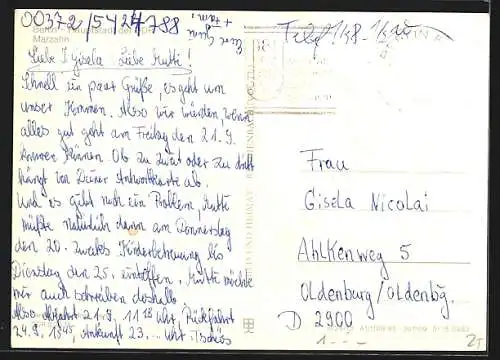 00372/5424788
Marzahn
Liebe Gisela Liebe Mutti!
Schnell ein paar Grüße, es geht um
unser Kommen. Also wir würden, wenn
alles gut geht am Freitag den 21.9.
kommen können. Ob zu zweit oder zu dritt
hängt von Deiner Antwortkarte ab.
Und es gibt noch ein Problem, Mutti
müßte natürlich dann am Donnerstag
den 20. zwecks Kinderbetreuung bis
Dienstag den 25. eintreffen. Mutti möchte
wir auch schreiben deshalb
Also Abfahrt 21.9. 11 18 Uhr, Rückfahrt
24.9. Ankunft 23... Uhr. Tschüs
Eure
+ Fam.
Frau
Gisela Nicolai
Ahlkenweg 5
Oldenburg/Oldenbg.
D 2900
1.---